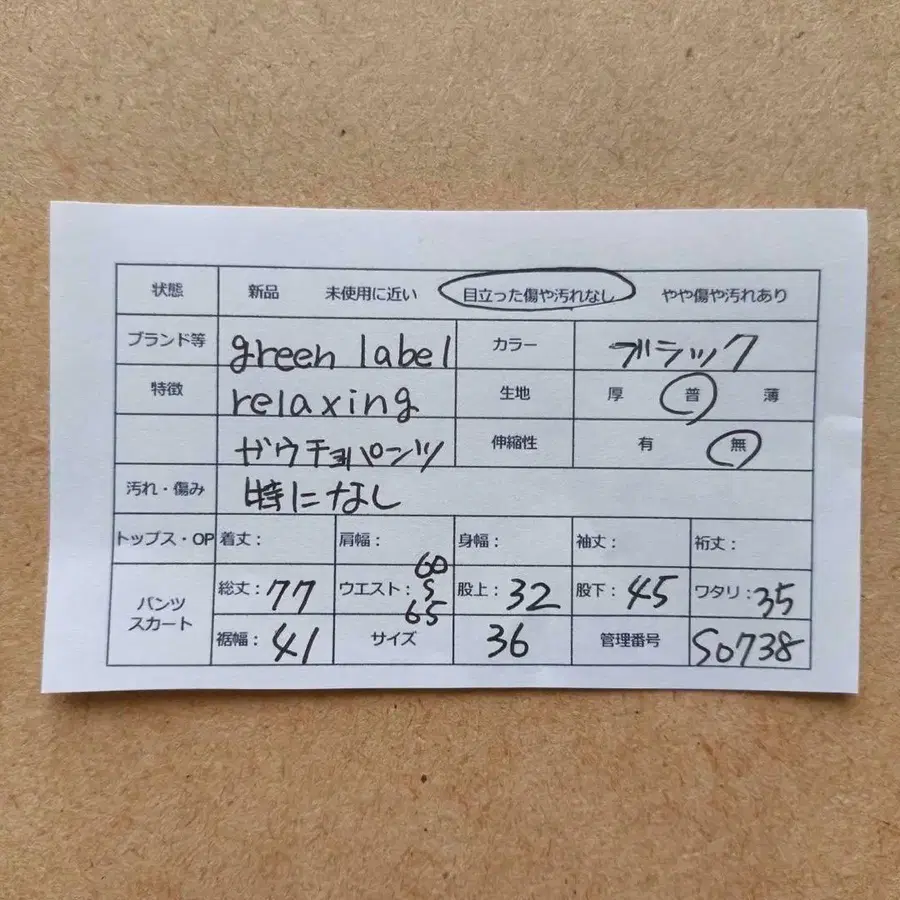 状態 新品 未使用に近い 目立った傷や汚れなし やや傷や汚れあり
ブランド等 green label カラー ブラック
特徴 relaxing 生地 厚 普 薄
ガウチョパンツ 伸縮性 有 無
汚れ・傷み 特になし
トップス・OP 着丈: 肩幅: 身幅: 袖丈: 裄丈:
パンツ スカート 総丈: 77 ウエスト: 60 S 65 股上: 32 股下: 45 ワタリ: 35
裾幅: 41 サイズ 36 管理番号 S0738